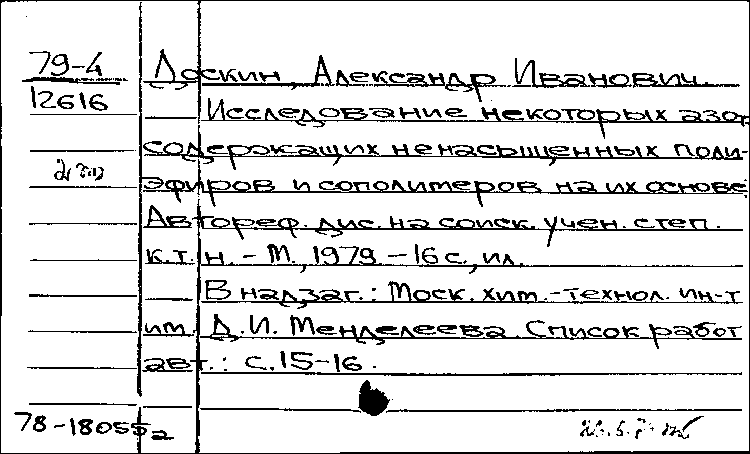 79-4
12616
Доскин, Александр Иванович.
Исследование некоторых азот
содержащих ненасыщенных поли-
эфиров и сополимеров на их основе
Автореф. дис. на соиск. учен. степ.
к.т.н. - М., 1979 - 16 с., ил.
В надзаг.: Моск. хим.-технол. ин-т
им. Д.И. Менделеева. Список работ
авт.: с. 15-16.
78-18055а